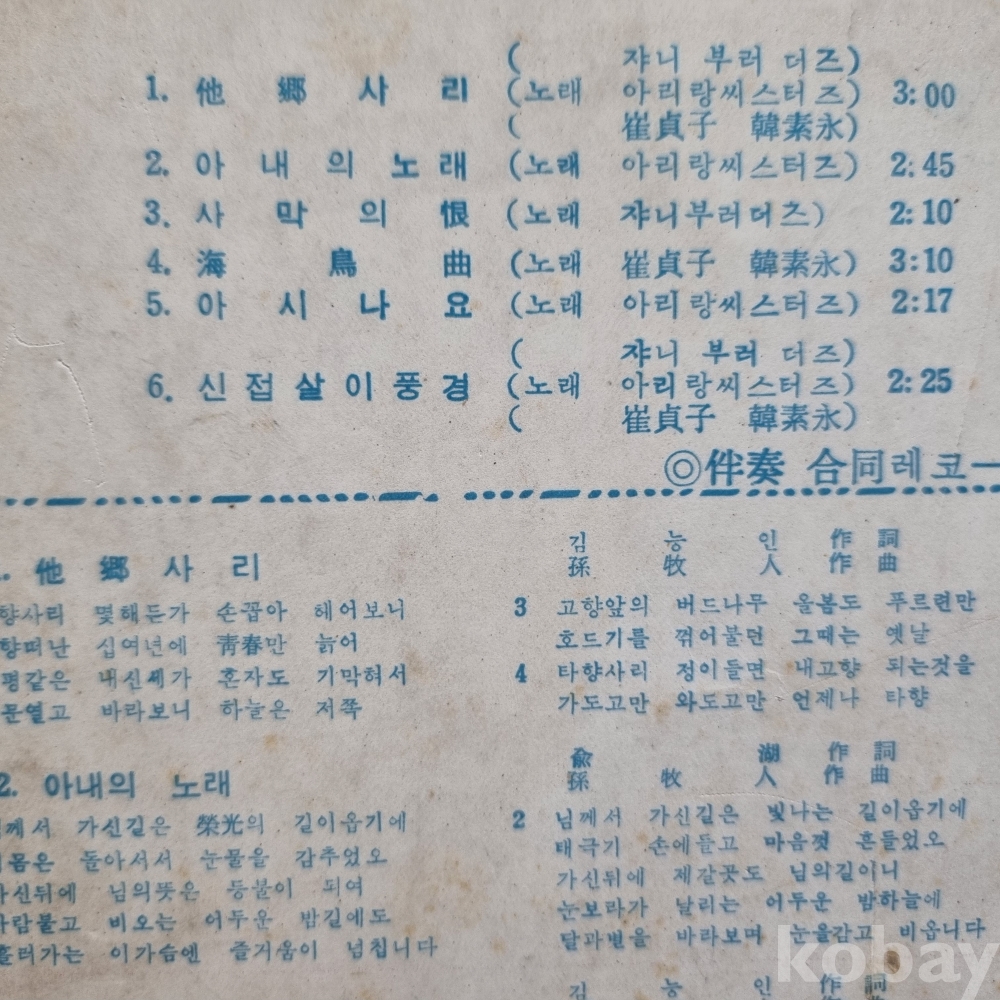 ( 쟈니 부러 더즈)
1. 他鄕사리 (노래 아리랑씨스터즈) 3:00
( 崔貞子 韓素永)
2. 아내의노래 (노래 아리랑씨스터즈) 2:45
3. 사막의恨 (노래 쟈니부러더즈) 2:10
4. 海鳥曲 (노래 崔貞子 韓素永) 3:10
5. 아시나요 (노래 아리랑씨스터즈) 2:17
( 쟈니 부러 더즈)
6. 신접살이풍경 (노래 아리랑씨스터즈) 2:25
( 崔貞子 韓素永)
◎伴奏 合同레코ー
他鄕사리
김능인 作詞
孫牧人 作曲
향사리 몇해든가 손꼽아 헤어보니
향떠난 십여년에 靑春만 늙어
평같은 내신세가 혼자도 기막혀서
문열고 바라보니 하늘은 저쪽
3 고향앞의 버드나무 올봄도 푸르련만
호드기를 꺾어불던 그때는 옛날
4 타향사리 정이들면 내고향 되는것을
가도고만 와도고만 언제나 타향
2. 아내의 노래
兪湖 作詞
孫牧人 作曲
께서 가신길은 榮光의 길이옵기에
몸은 돌아서서 눈물을 감추었오
가신뒤에 님의뜻은 등불이 피여
바람불고 비오는 어두운 밤길에도
흘러가는 이가슴엔 즐거움이 넘칩니다
2 님께서 가신길은 빛나는 길이옵기에
태극기 손에들고 마음껏 흔들었오
가신뒤에 제갈곳도 님의길이니
눈보라가 날리는 어두운 밤하늘에
달과별을 바라보며 눈을감고 비옵니다
김능인 作詞
kobay